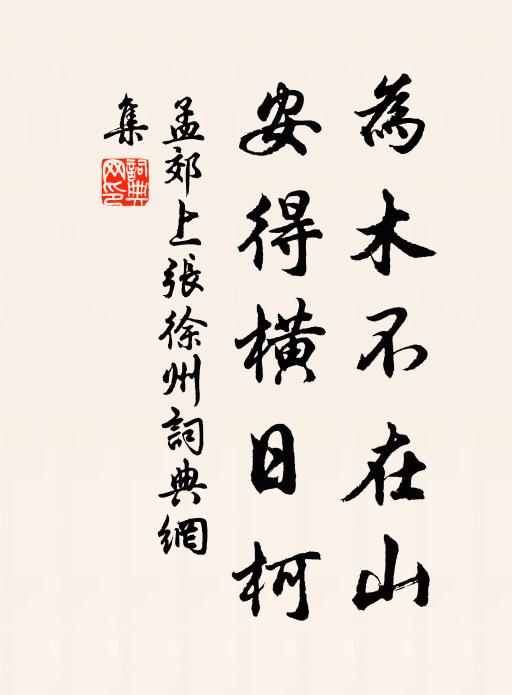 為木不在山
安得橫日柯
孟郊上張徐州詞典網
集
詞典網印